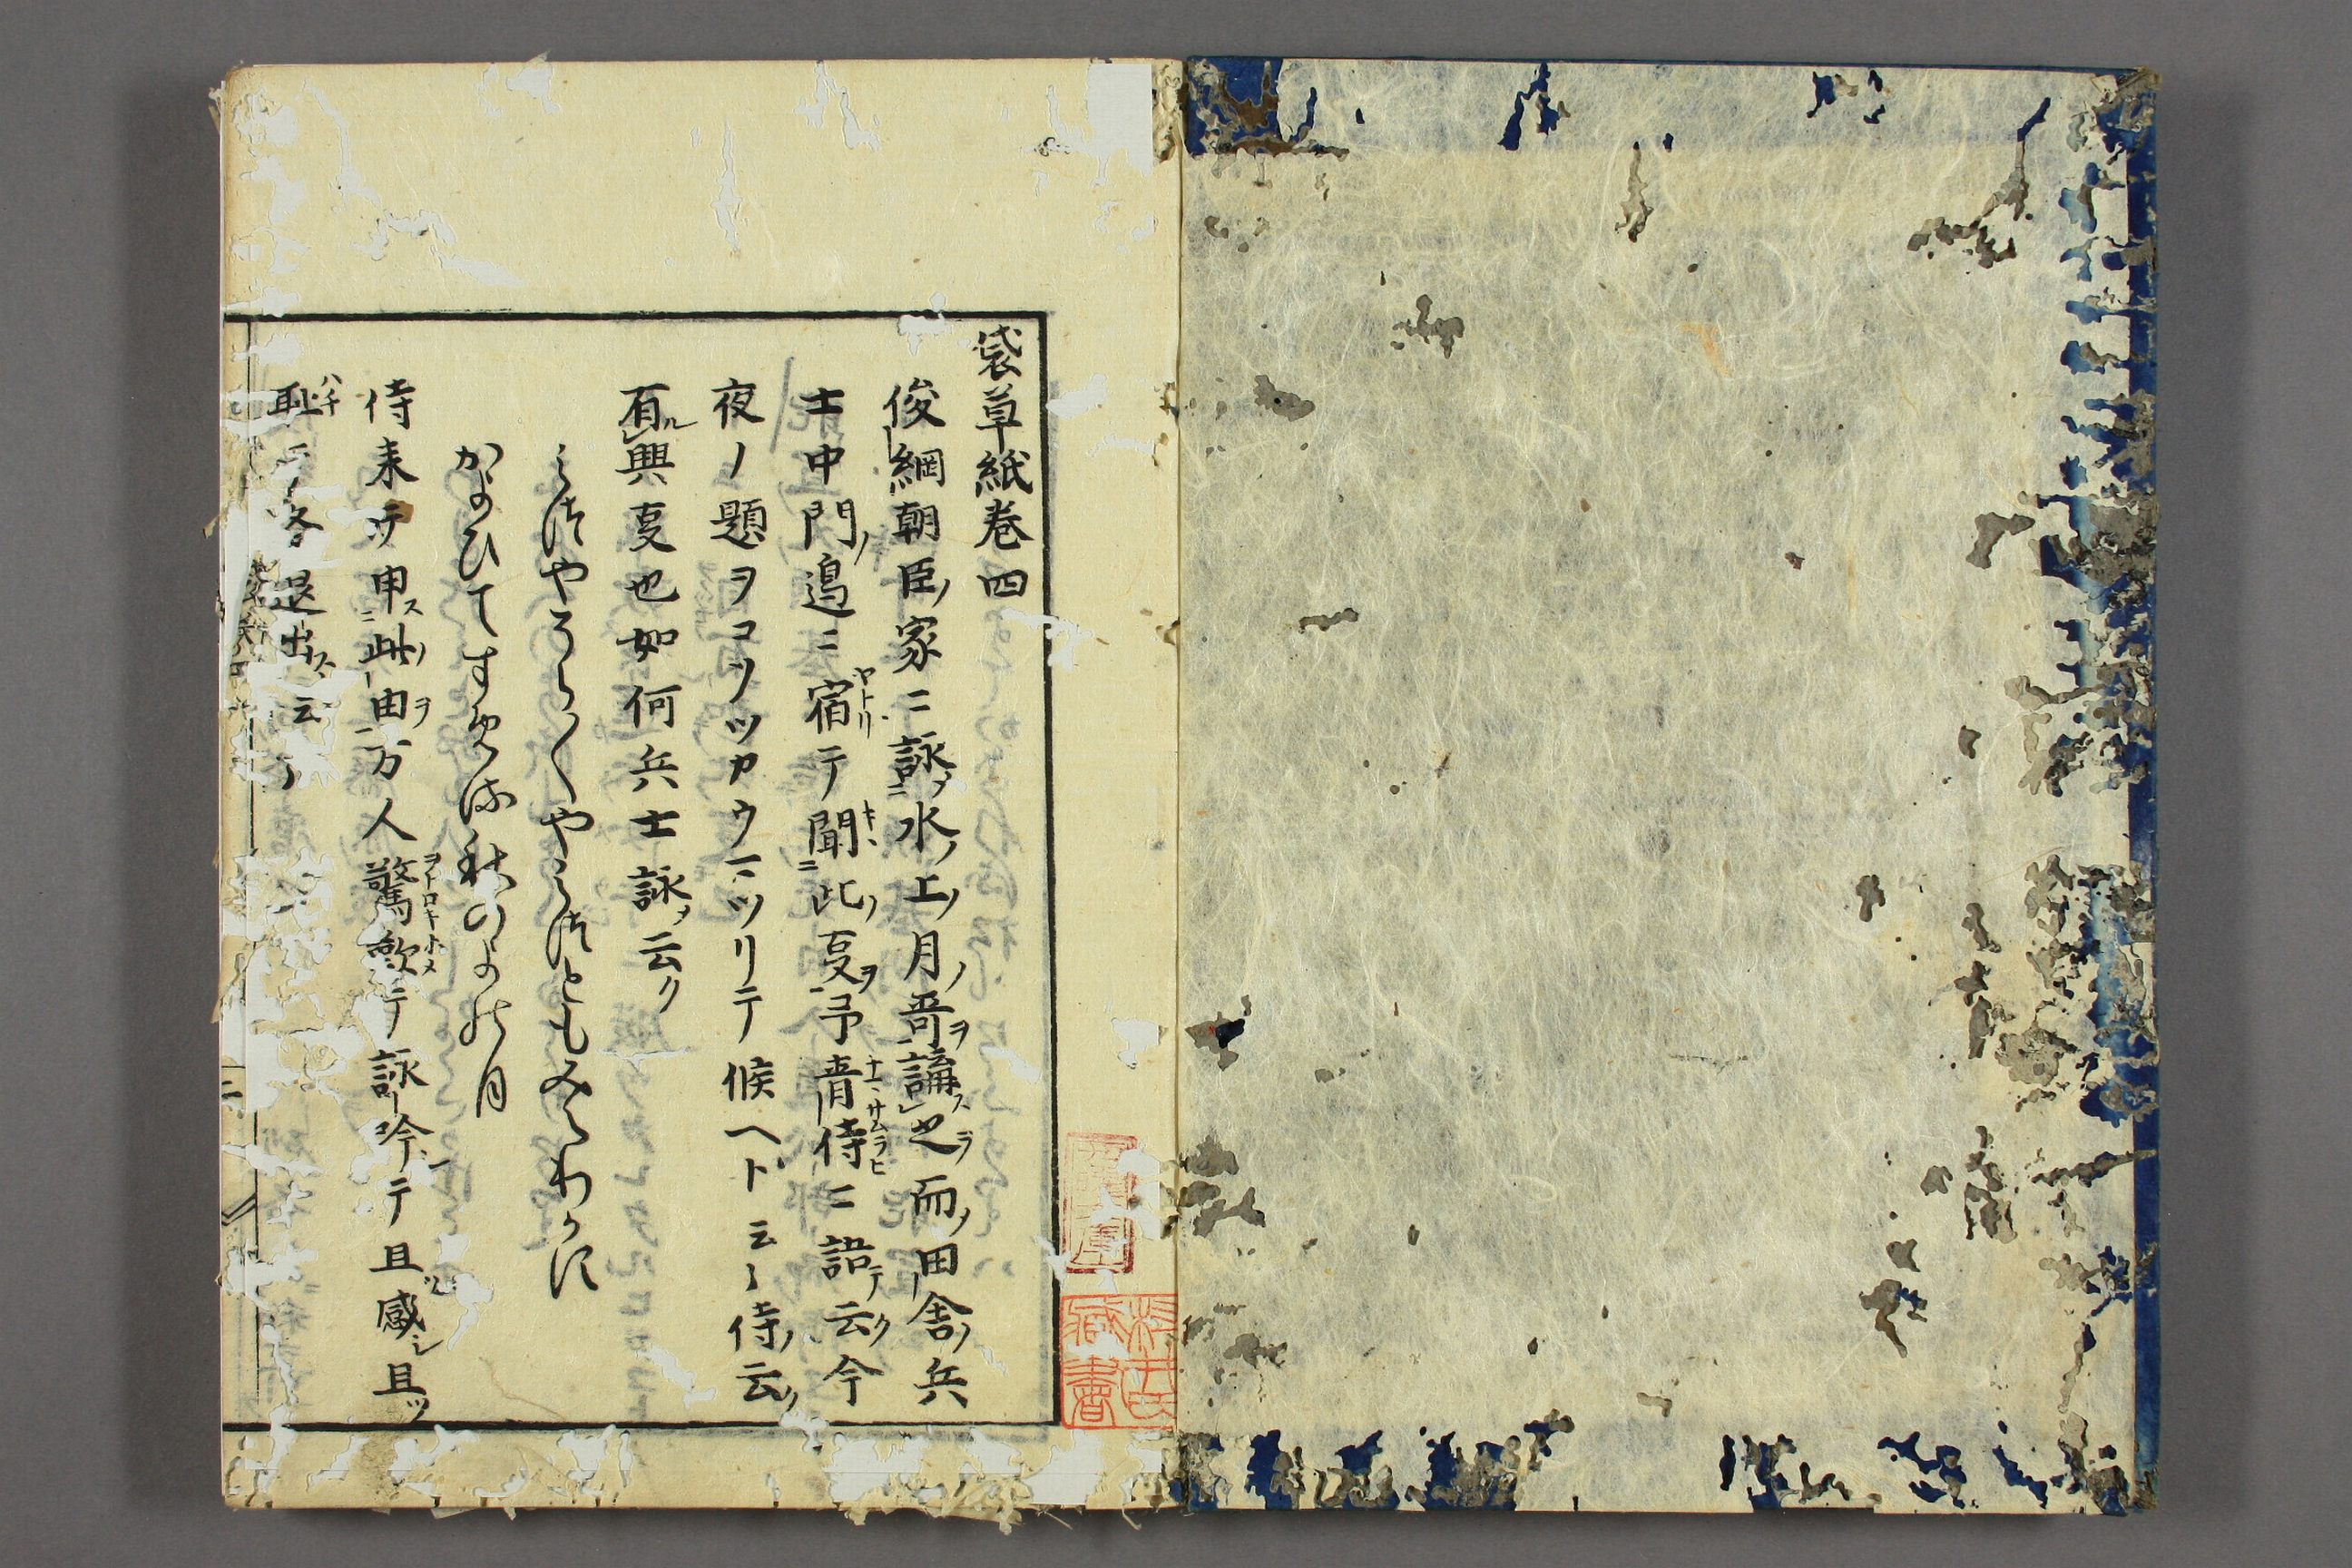 袋草紙巻四
俊綱朝臣ノ家ニ詠ヲ水ノ上ノ月ノ哥ヲ講ス之ヲ而ノ田舎ノ兵
士中門ノ邉ニ宿ヤトリテ聞キヽ此ノ㕝ヲ予青侍ナマサムラヒニ語テ云ク今
夜ノ題ヲコソツカウマツリテ候ヘト云々侍ノ云ク
有ル興㕝也如何兵士詠ヲ云ク
みつやそらそらやみつともみえわかす
かよひてすめる秋のよの月
侍来テ申ス此ノ由ヲ方人驚歎ヲトロキホメテ詠吟テ且ツ感シ且ツ
恥ハチテ各退出ス云々